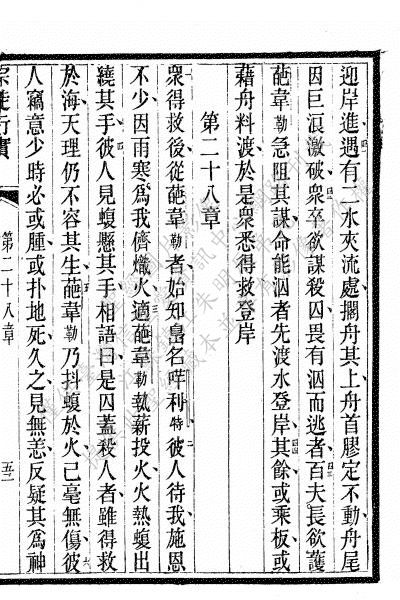 迎岸進遇有二水夾流處擱舟其上舟首膠定不動舟尾
因巨浪激破衆卒欲謀殺囚畏有泅而逃者百夫長欲護
葩韋勒急阻其謀命能泅者先渡水登岸其餘或乘板或
藉舟料渡於是衆悉得救登岸
第二十八章
衆得救後從葩韋勒者始知島名哶利特彼人待我施恩
不少因雨寒爲我儕熾火適葩韋勒執薪投火火熱蝮出
繞其手彼人見蝮懸其手相語曰是囚蓋殺人者雖得救
於海天理仍不容其生葩韋勒乃抖蝮於火己毫無傷彼
人竊意少時必或腫或扑地死久之見無恙反疑其爲神
宗徒行實
第二十八章
五二